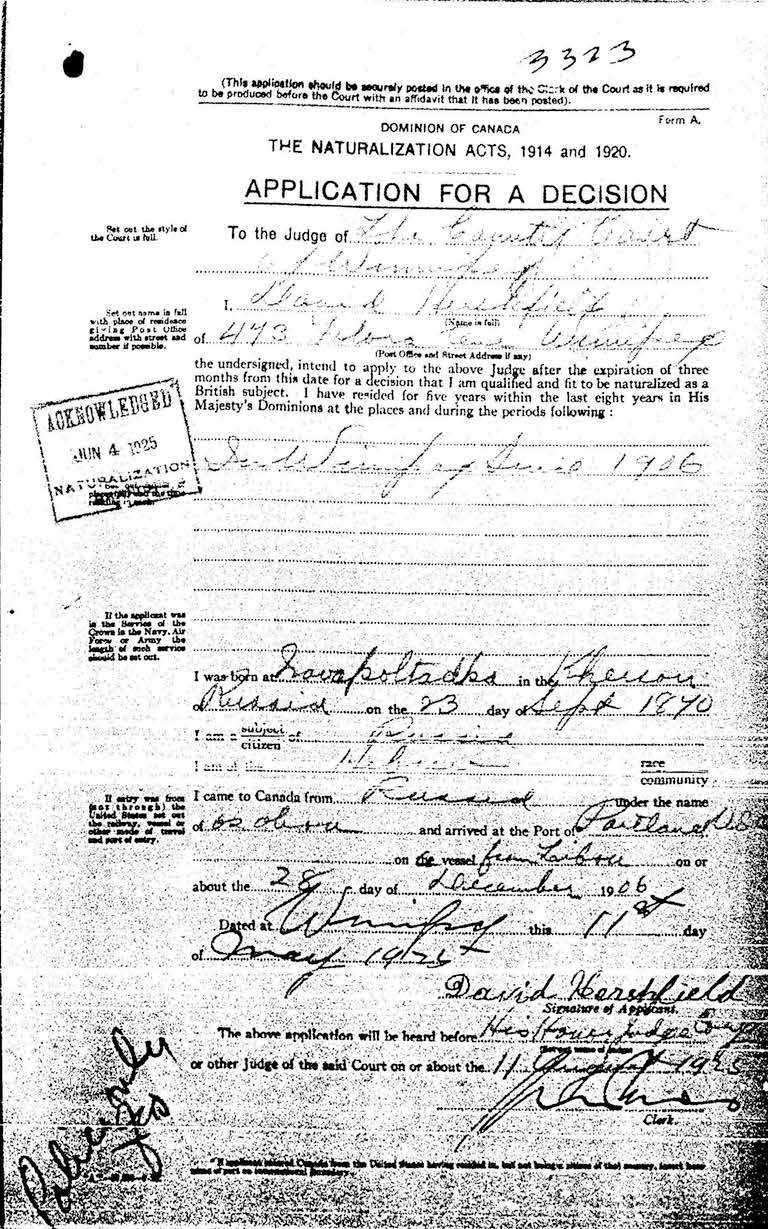 3323
(This application should be securely posted in the office of the Clerk of the Court as it is required
to be produced before the Court with an affidavit that it has been posted).
Form A.
DOMINION OF CANADA
THE NATURALIZATION ACTS, 1914 and 1920.
APPLICATION FOR A DECISION
Set out the style of
the Court in full.
To the Judge of The County Court
of Winnipeg
Set out name in full
with place of residence
giving Post Office
address with street and
number if possible.
I, David Hershfield
(Name in full)
of 473 Flora Ave Winnipeg
(Post Office and Street Address if any)
the undersigned, intend to apply to the above Judge after the expiration of three
months from this date for a decision that I am qualified and fit to be naturalized as a
British subject. I have resided for five years within the last eight years in His
Majesty's Dominions at the places and during the periods following :
ACKNOWLEDGED
JUN 4 1925
NATURALIZATION
In Winnipeg since 1906
If the applicant was
in the Service of the
Crown in the Navy, Air
Force or Army the
length of such service
should be set out.
I was born at in the Kherson
of Russia on the 23 day of Sept 1870
I am a subject of Russia
citizen
I am of the Hebrew race
community
If entry was from
(not through) the
United States set out
the railway, vessel or
other mode of travel
and port of entry.
I came to Canada from Russia under the name
of as above and arrived at the Port of Portland USA
on the vessel from on or
about the 28 day of December 1906
Dated at Winnipeg this 11st day
of May 1925
David Hershfield
Signature of Applicant.
The above application will be heard before His Honor Judge
or other Judge of the said Court on or about the 11 August 1925
Clerk.
* If applicant entered Canada from the United States having resided in, but not being a citizen of that country, insert here
name of port on international boundary.